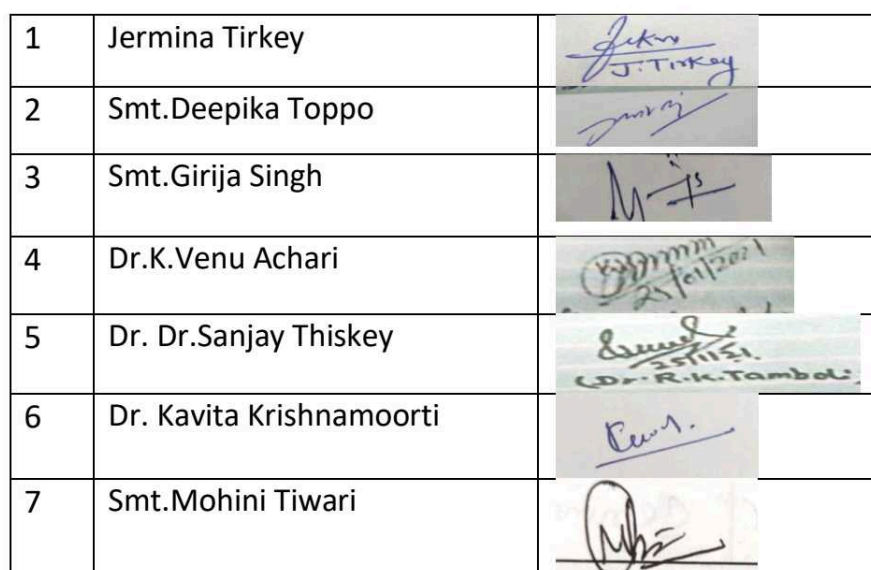 1 Jermina Tirkey
J. Tirkey
2 Smt.Deepika Toppo
3 Smt.Girija Singh
4 Dr.K.Venu Achari
25/01/2021
5 Dr. Dr.Sanjay Thiskey
(Dr. R.K. Tamboli
6 Dr. Kavita Krishnamoorti
7 Smt.Mohini Tiwari